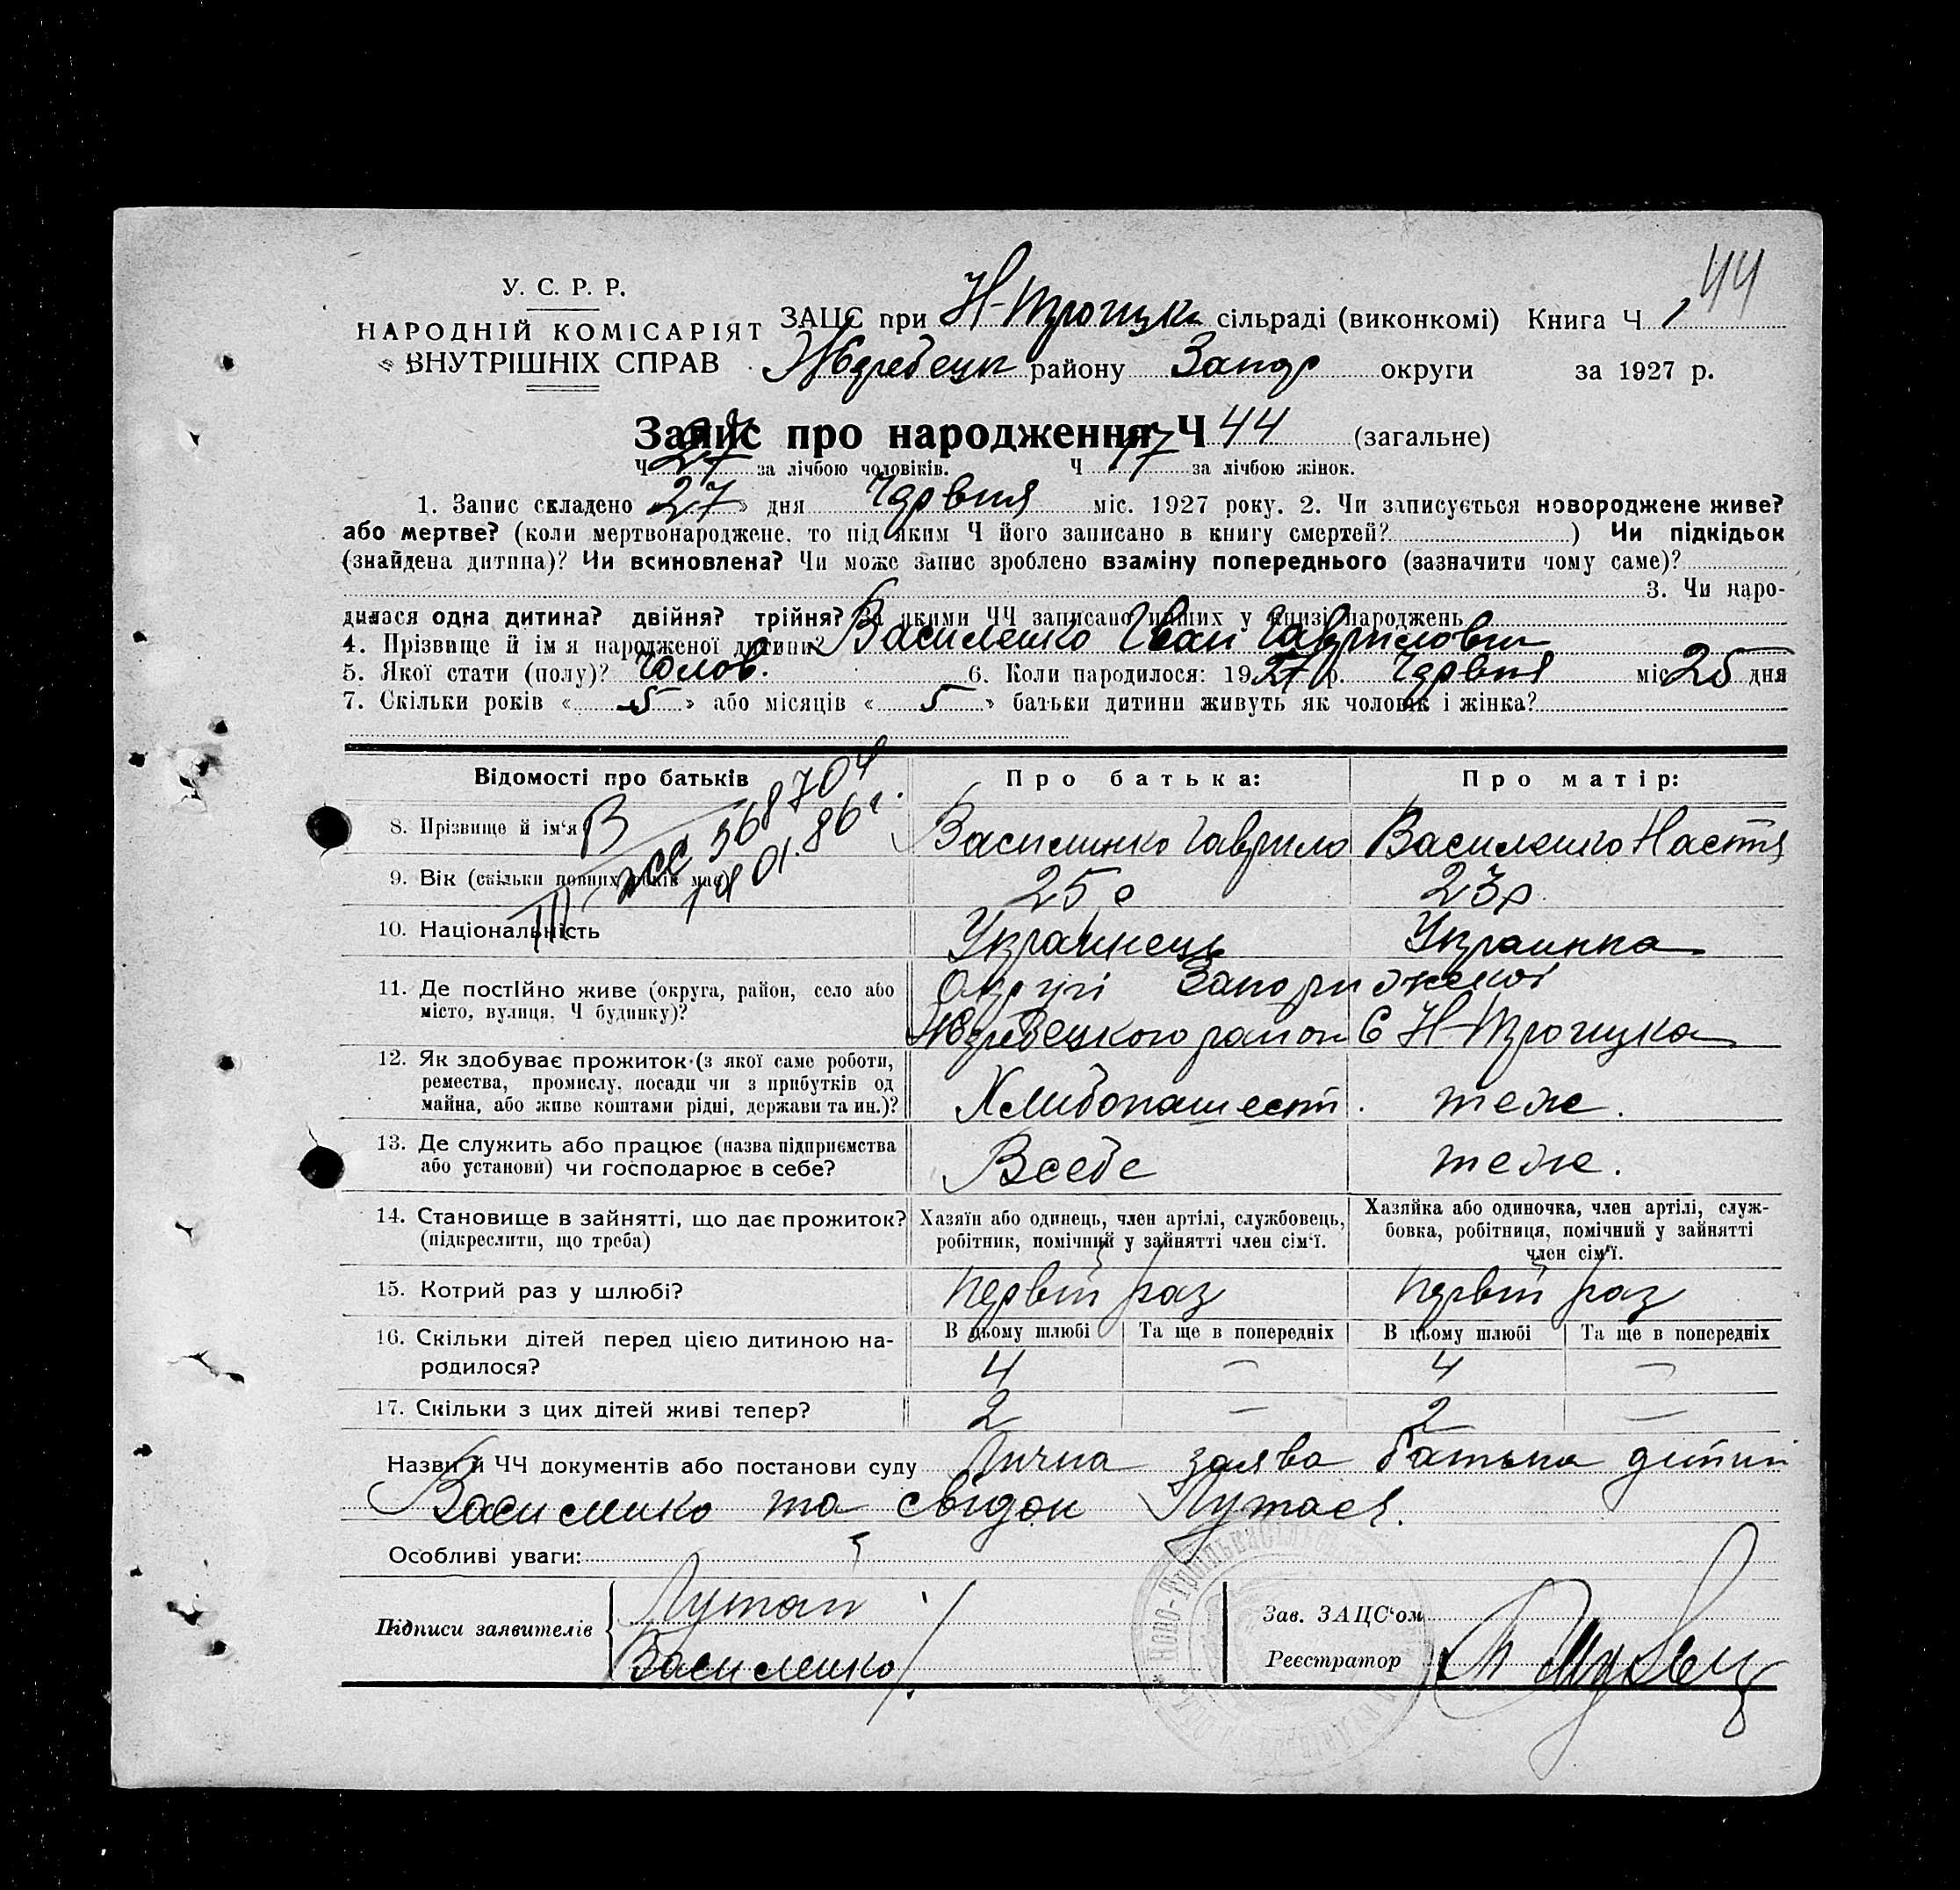 44
У. С. Р. Р.
НАРОДНІЙ КОМІСАРІЯТ
ВНУТРІШНІХ СПРАВ
ЗАЦС при Н-Троицк сільраді (виконкомі) Книга Ч 1
Жеребецк району Запор округи за 1927 р.
Запис про народження Ч 44 (загальне)
Ч 27 за лічбою чоловіків. Ч 17 за лічбою жінок.
1. Запис складено 27 » дня Червня міс. 1927 року. 2. Чи записується новороджене живе?
або мертве? (коли мертвонароджене, то під яким Ч його записано в книгу смертей? ) Чи підкідьок
(знайдена дитина)? Чи всиновлена? Чи може запис зроблено взаміну попереднього (зазначити чому саме)?
3. Чи наро-
дилася одна дитина? двійня? трійня? За якими ЧЧ записано інших у книзі народжень
4. Прізвище й ім я народженої дитини? Василенко Іван Гаврилович
5. Якої стати (полу)? Чолов. 6. Коли народилося: 1927 р. Червня міс 25 дня
7. Скільки років « 5 » або місяців « 5 » батьки дитини живуть як чоловік і жінка?
Відомості про батьків Про батька: Про матір:
8. Прізвище й ім‘я Василинко Гаврило Василенко Настя
9. Вік (скільки повних років має) 25 р 23 р
10. Національність Украинець Украинка
11. Де постійно живе (округа, район, село або місто, вулиця, Ч будинку)? Округи Запорижекоі
Жеребецкого район С Н-Троицка
12. Як здобуває прожиток (з якої саме роботи,
ремества, промислу, посади чи з прибутків од
майна, або живе коштами рідні, держави та ин.)? Хлибопашест. теже.
13. Де служить або працює (назва підприємства
або установи) чи господарює в себе? Всебе теже.
14. Становище в зайнятті, що дає прожиток?
(підкреслити, що треба)
Хазяїн або одинець, член артілі, службовець,
робітник, помічний у зайнятті член сім‘ї.
Хазяйка або одиночка, член артілі, служ-
бовка, робітниця, помічний у зайнятті
член сім‘ї.
15. Котрий раз у шлюбі? первій раз первій раз
16. Скільки дітей перед цією дитиною на-
родилося?
В цьому шлюбі Та ще в попередніх В цьому шлюбі Та ще в попередніх
4 — 4 —
17. Скільки з цих дітей живі тепер? 2 — 2 —
Назви й ЧЧ документів або постанови суду Лична заява батька дитини
Василенко та свідок Лутаєя.
Особливі уваги:
Підписи заявителів Лутай
Василенко
Зав. ЗАЦС‘ом
Реєстратор